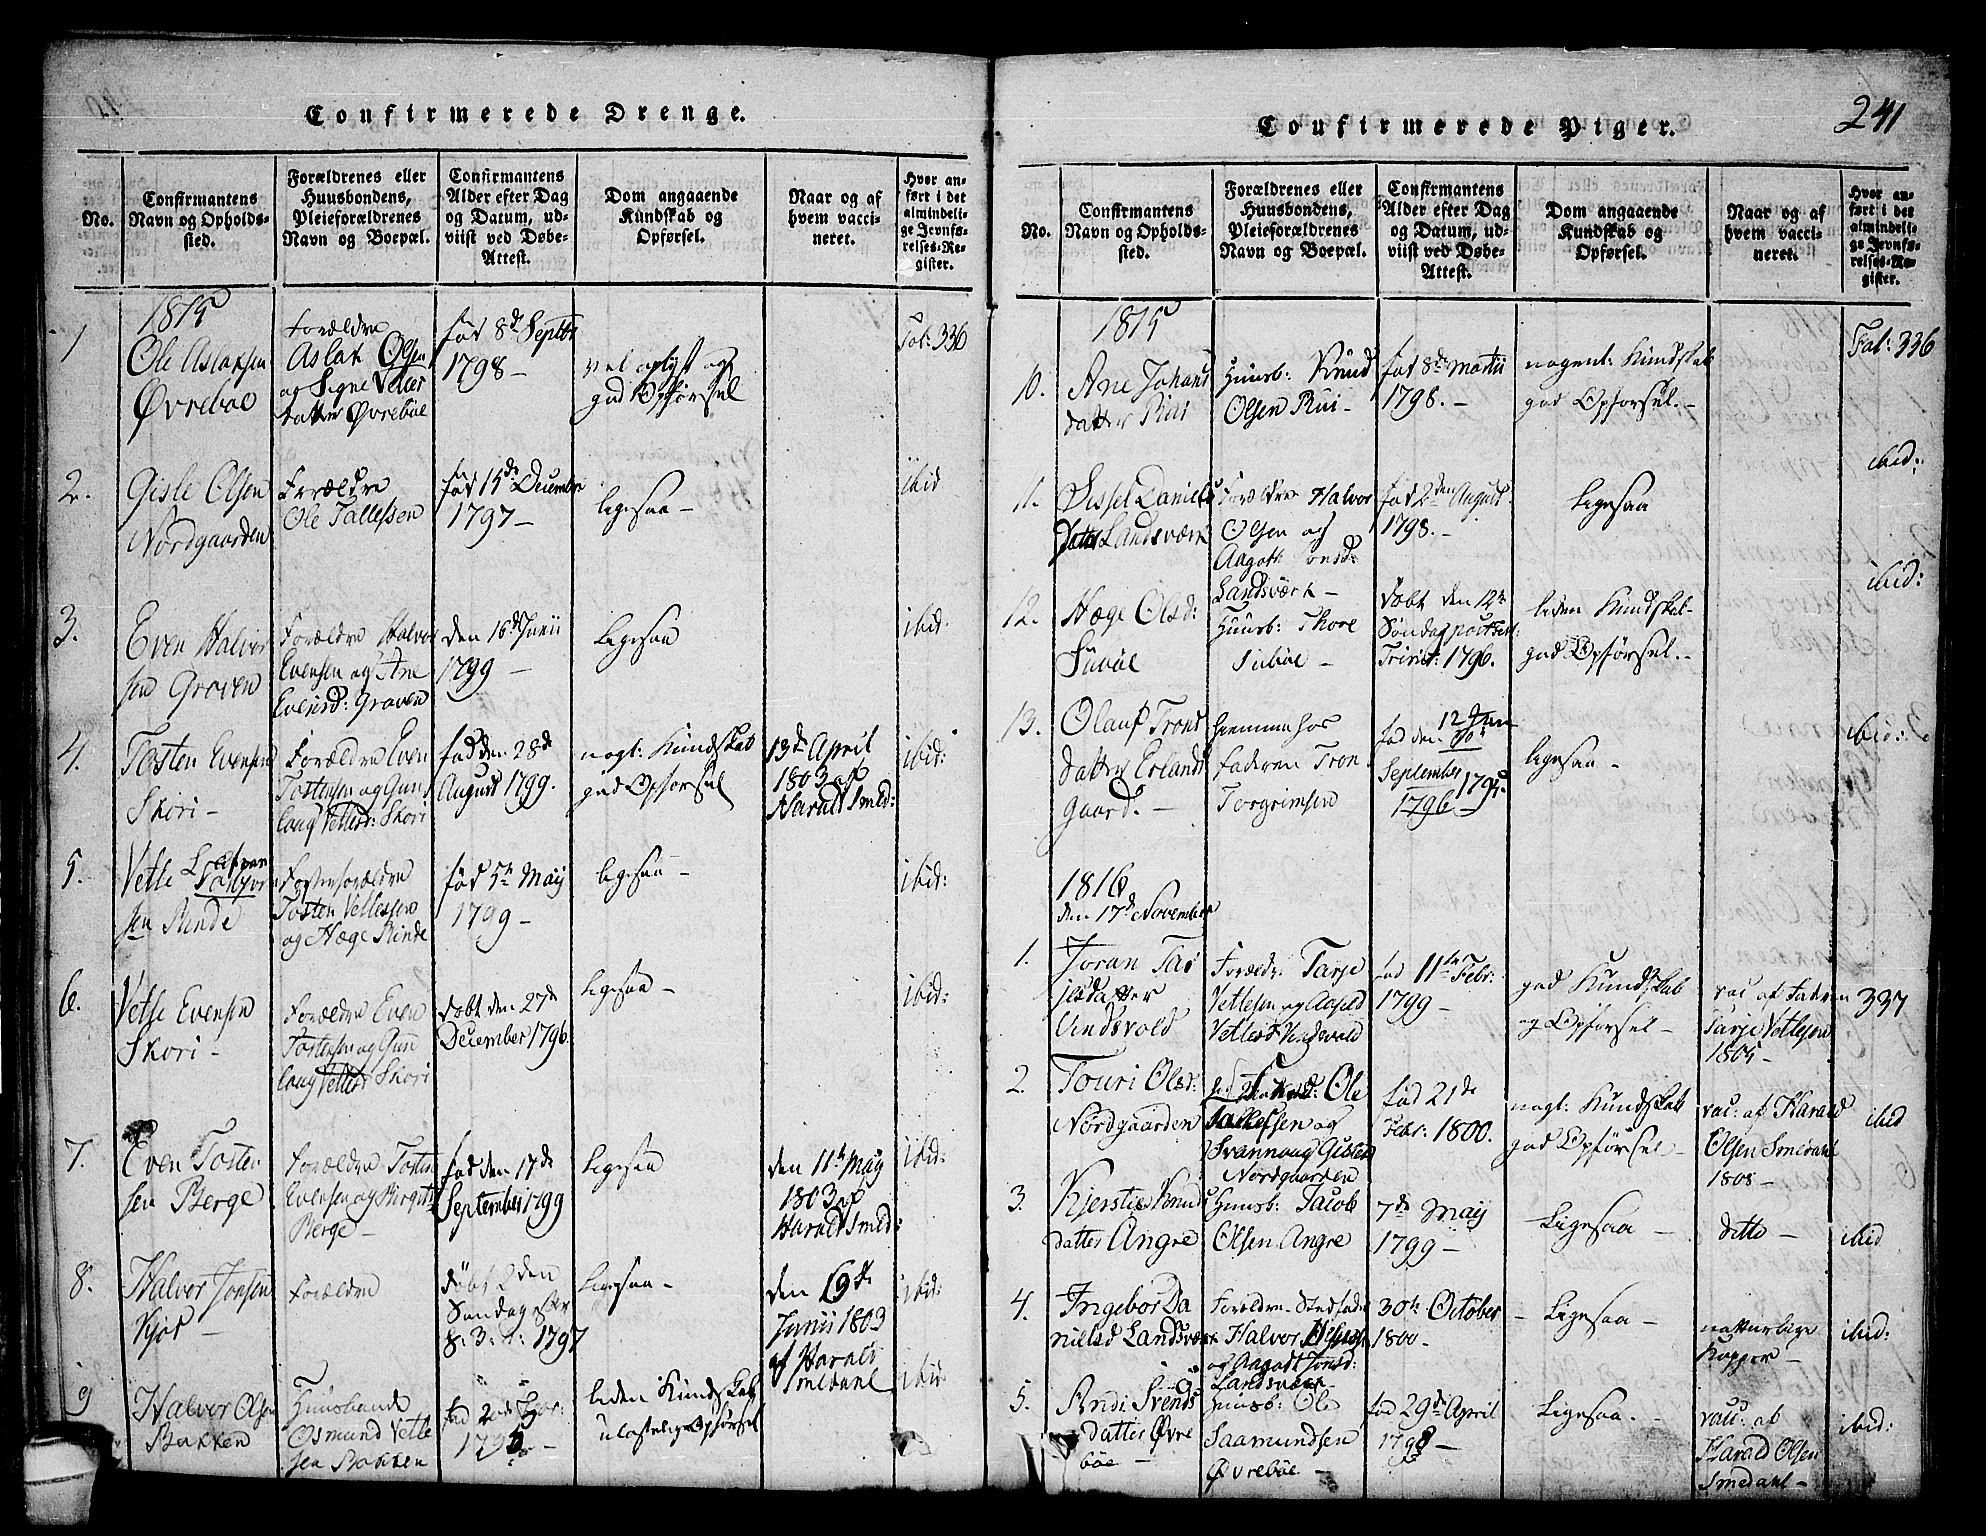 Confirmerede Drenge.
No.
Confirmantens
Navn og Opholds-
sted.
Forældrenes eller
Huusbondens,
Pleieforældrenes
Navn og Boepæl.
Confirmantens
Alder efter Dag
og Datum, ud-
viist ved Døbe-
Attest.
Dom angaaende
Kundskab og
Opførsel.
Naar og af
hvem vacci-
neret.
Hvor an-
ført i det
almindeli-
ge Jevnfø-
relses-Re-
gister.
1815
1
Ole Aslaksen
Øvrebøe
Forældre
Aslak Olsen
og Signe Vetles
datter Øvrebøe
fød 8d Septbr
1798 -
vel oplyst og
god Opførsel
Fol: 336
2.
Gisle Olsen
Nordgaarden
Forældre
Ole Tallefsen
fød 15de Decembr
1797 -
ligesaa -
ibid
3.
Even Halvor
sen Graven
Forældre Halvor
Evensen og Ane
Evensd: Graven
den 16d Junii
1799 -
ligesaa
ibid:
4.
Tosten Evensen
Skori -
Forældre Even
Tostensen og Gun
laug Vetlesd: Skori
fød den 28d
August 1799.
nogl: Kundskab
god Opførsel
13de April
1803 af
Harald Smed:
ibid:
5.
Vetle
sen Rinde
Fosterforældre
Tosten Vetlesen
og Hæge Rinde
fød 5te Maij
1799 -
ligesaa -
ibid:
6.
Vetle Evensen
Skori -
Forældre Even
Tostensen og Gun
laug Vetlesd Skori
døbt den 27de
December 1796
ligesaa -
ibid:
7.
Even Tosten
sen Berge
Forældre Tosten
Evensen og Birgith
Berge -
fød den 17de
September 1799
ligesaa
den 11te Maij
1803 af
Harald Smed:
ibid:
8.
Halvor Jonsen
Kjos -
Forældre
døbt 2den
Søndag efter
8: 3: r: 1797
ligesaa -
den 19de
Junii 1803
af Harald
Smedahl
ibid:
9
Halvor Olsen
Bakken
Huusbonde
Osmund Vetle
sen Bakken
fød
liden Kundskab
ulastelig Opførsel
ibid
Confirmerede Piger.
241
No.
Confirmantens
Navn og Opholds-
sted.
Forældrenes eller
Huusbondens,
Pleieforældrenes
Navn og Boepæl.
Confirmantens
Alder efter Dag
og Datum, ud-
viist ved Døbe-
Attest.
Dom angaaende
Kundskab og
Opførsel.
Naar og af
hvem vacci-
neret.
Hvor an-
ført i det
almindeli-
ge Jevnfø-
relses-Re-
gister.
1815
10.
Ane Johans
datter Rui
Huusb: Knud
Olsen Rui -
fød 8de Martii
1798. -
nogenl: Kundskab
god Opførsel. -
Fol: 336
11.
Sissel Daniels
datter Landsværk
Forældre Halvor
Olsen og
Aagoth Jonsd:
Landsværk -
fød 2den August
1798. -
Ligesaa
ibid:
12.
Hæge Olsd:
Sübøe
Huusb: Thore
Sübøe -
døbt den 12te
Søndag post
Trinit: 1796.
liden Kundskab
god Opførsel. -
ibid:
13.
Olauf Trond
datter Erlands
gaard. -
hiemme hos
faderen Tron
Torgrimsen
fød den 12
September
1796 1795.
ligesaa -
ibid:
1816
den 17d November
1.
Joran Tar
jesdatter
Vindsvold
Forældr: Tarje
Vetlesen og Aaslod
Vetlesd Vindsvold
fød 11te Febr:
1799 -
god Kundskab
og Opførsel -
vac: af Faderen
Tarje Vetlesen
1805 -
337
2.
Touri Olsd:
Nordgaarden
Ole
Tallefsen og
Svannoug Gislesd
Nordgaarden
fød 21de
Febr: 1800.
nogl: Kundskab
god Opførsel -
vac: af Harald
Olsen Smedahl
1808 -
ibid
3.
Kjerstie Knuds
datter Angre
Huusb: Jacob
Olsen Angre
7de Maij
1799 -
Ligesaa -
ditto -
ibid
4.
Ingebor Da
nielsd Landsværk
Forældre Stedfader
Halvor Olsen
og Aagodt Jonsd:
Landsværk
30te October
1800 -
Ligesaa -
natturlige
Kopper -
ibid:
5.
Andi Svends
datter Øvre
bøe -
Huusb: Ole
Saamundsen
Øvrebøe -
fød 29de April
1798 -
Ligesaa. -
vac: af
Harald Olsen
Smedahl -
ibid: